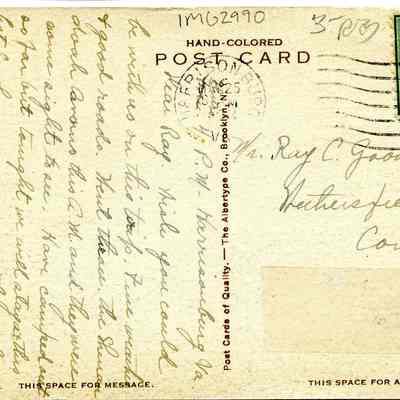 IMG2990
HAND-COLORED
POST CARD
HARRISONBURG
25
VA
Post Cards of Quality. — The Albertype Co., Brooklyn, N.Y.
P.M. Harrisonburg Va
Dear Ray, Wish you could
be with us on this trip. Fine weather
& good roads. Went thru the
Caverns this A.M. and they were
some sight to see. Have camped out
so far but tonight we will stay
Mr. Ray C.
Con
THIS SPACE FOR MESSAGE.
THIS SPACE FOR A